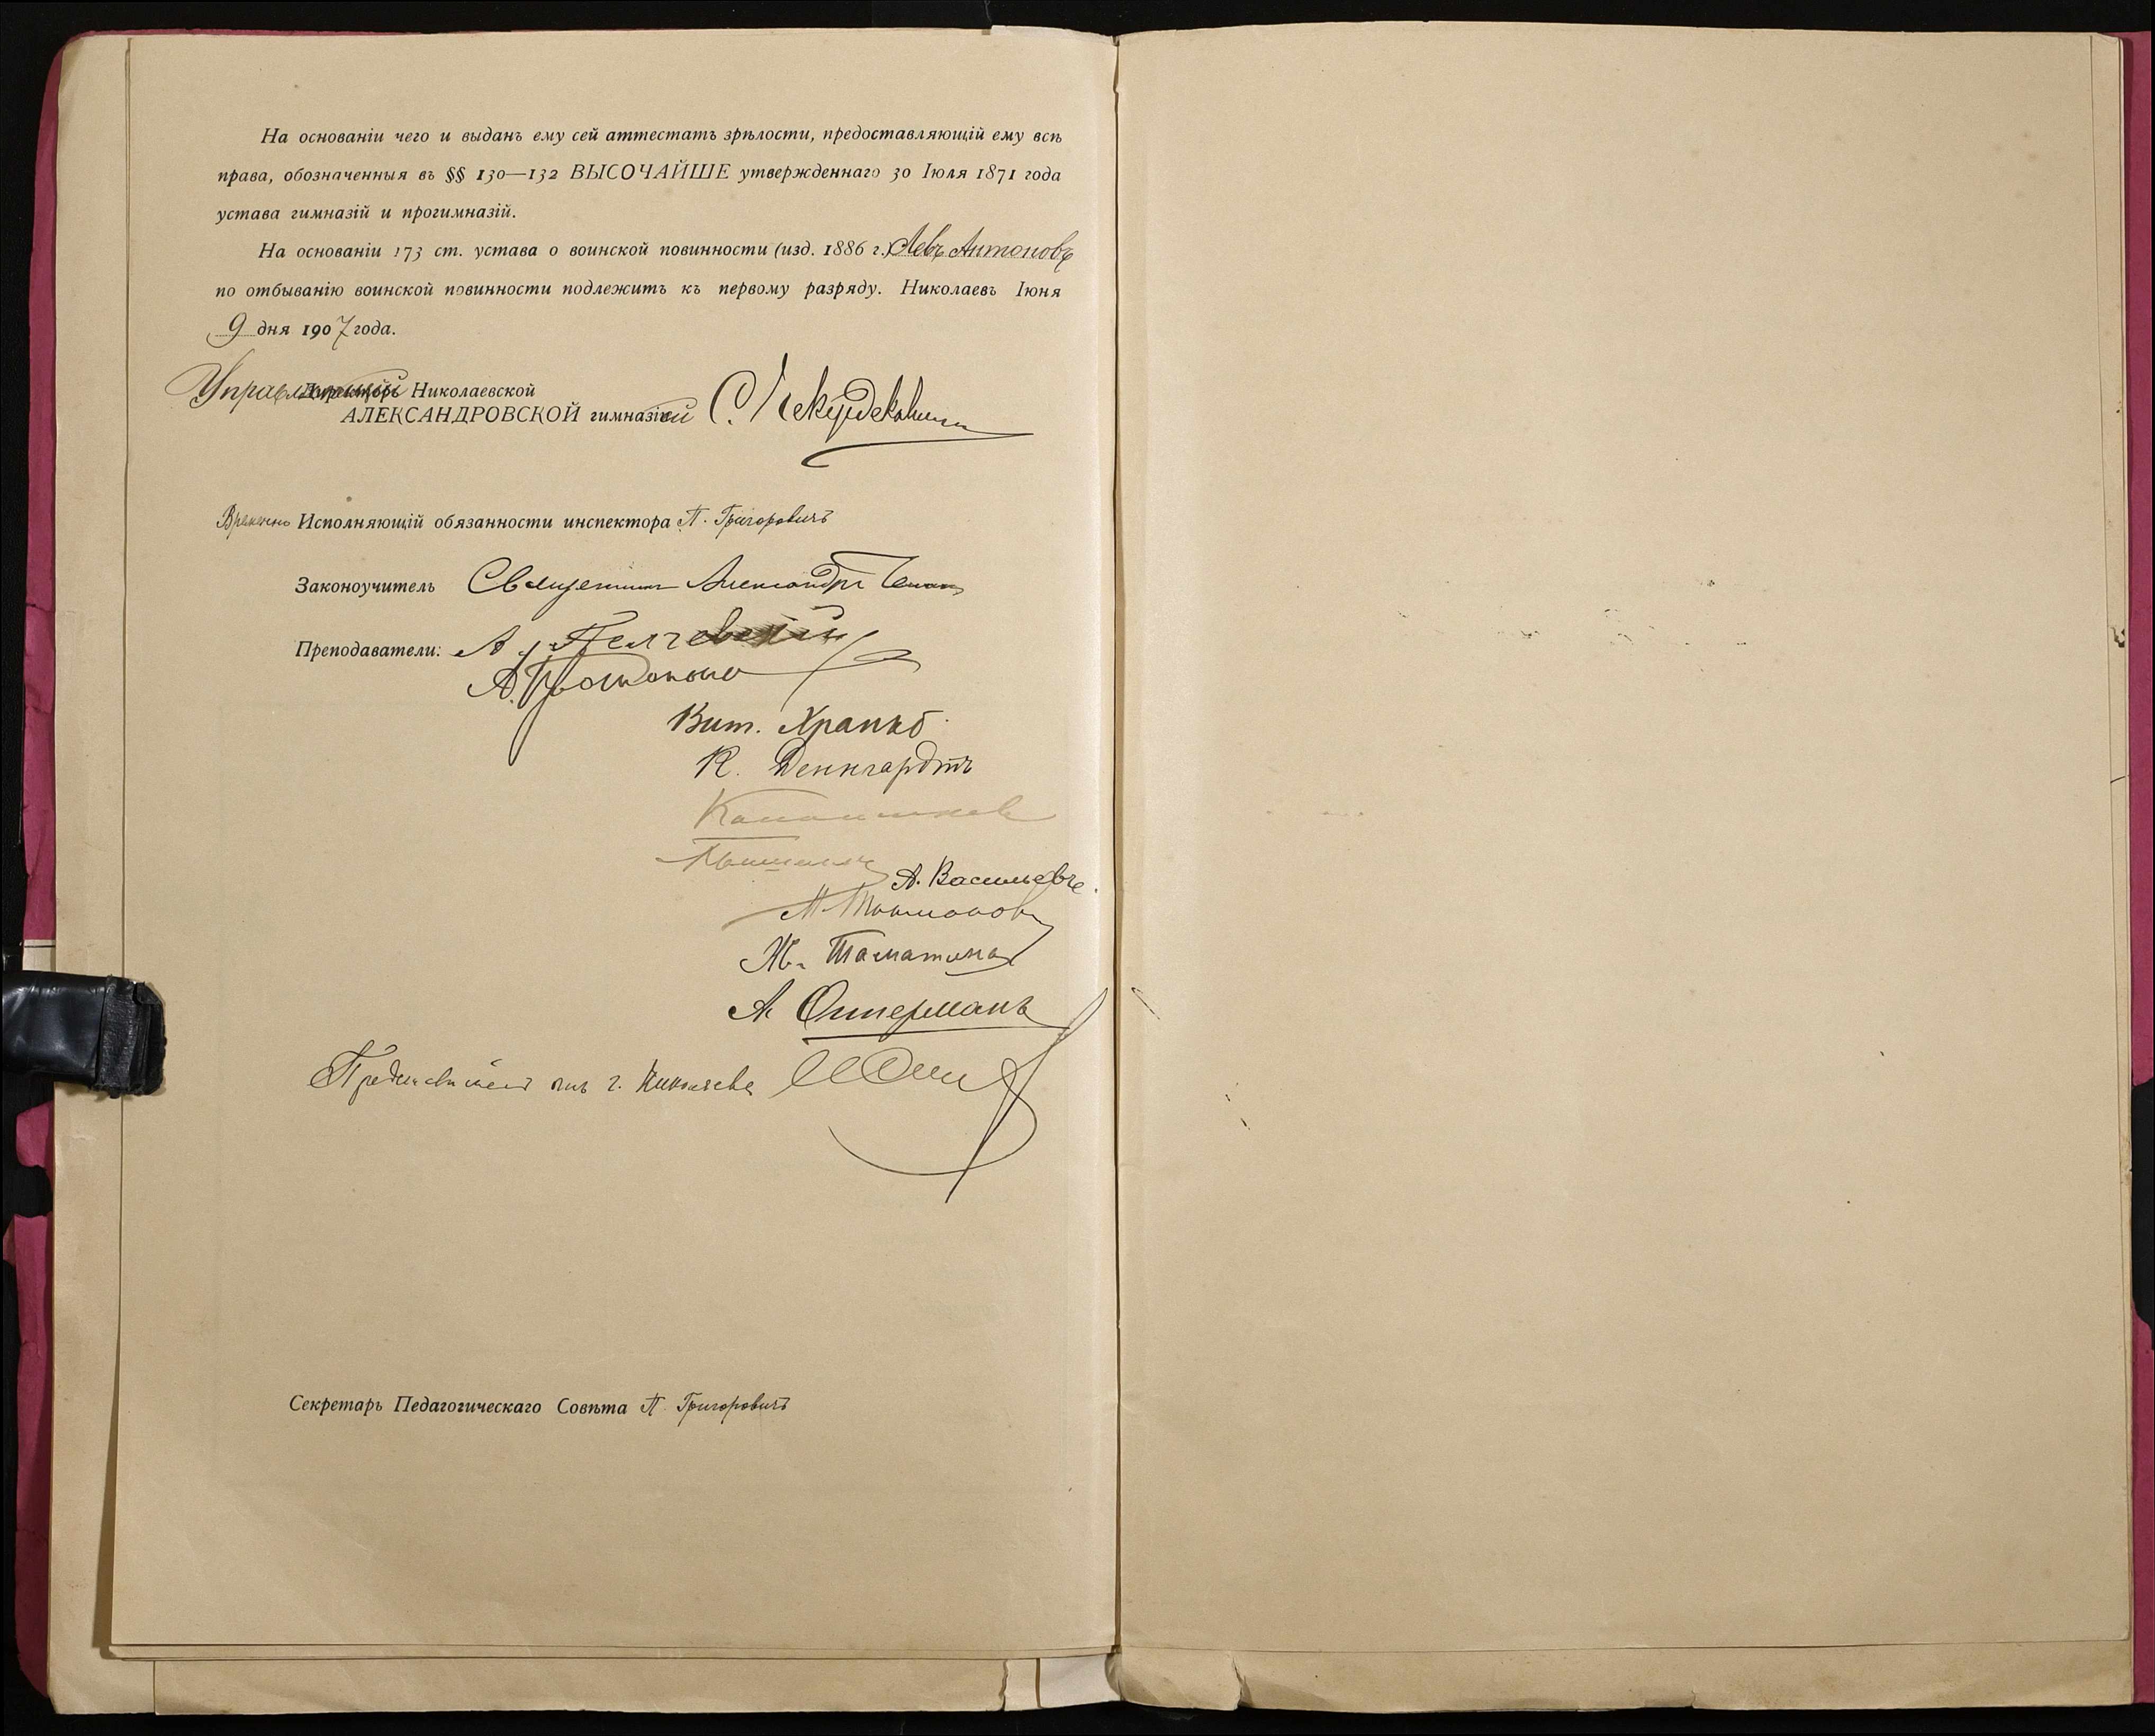 На основаніи чего и выданъ ему сей аттестатъ зрѣлости, предоставляющій ему всѣ
права, обозначенныя въ §§ 130—132 ВЫСОЧАЙШЕ утвержденнаго 30 Іюля 1871 года
устава гимназій и прогимназій.
На основаніи 173 ст. устава о воинской повинности (изд. 1886 г.) Левъ Антоновъ
по отбыванію воинской повинности подлежитъ къ первому разряду. Николаевъ Іюня
9 дня 1907 года.
Управляющій Николаевской
АЛЕКСАНДРОВСКОЙ гимназіей С.
Временно Исполняющій обязанности инспектора П. Григоровичъ
Законоучитель Священникъ Александръ
Преподаватели: А.
А.
Вит.
К. Деннгардтъ
А. Васильевъ.
А. Остерманъ
отъ г. Николаева
Секретарь Педагогическаго Совѣта П. Григоровичъ